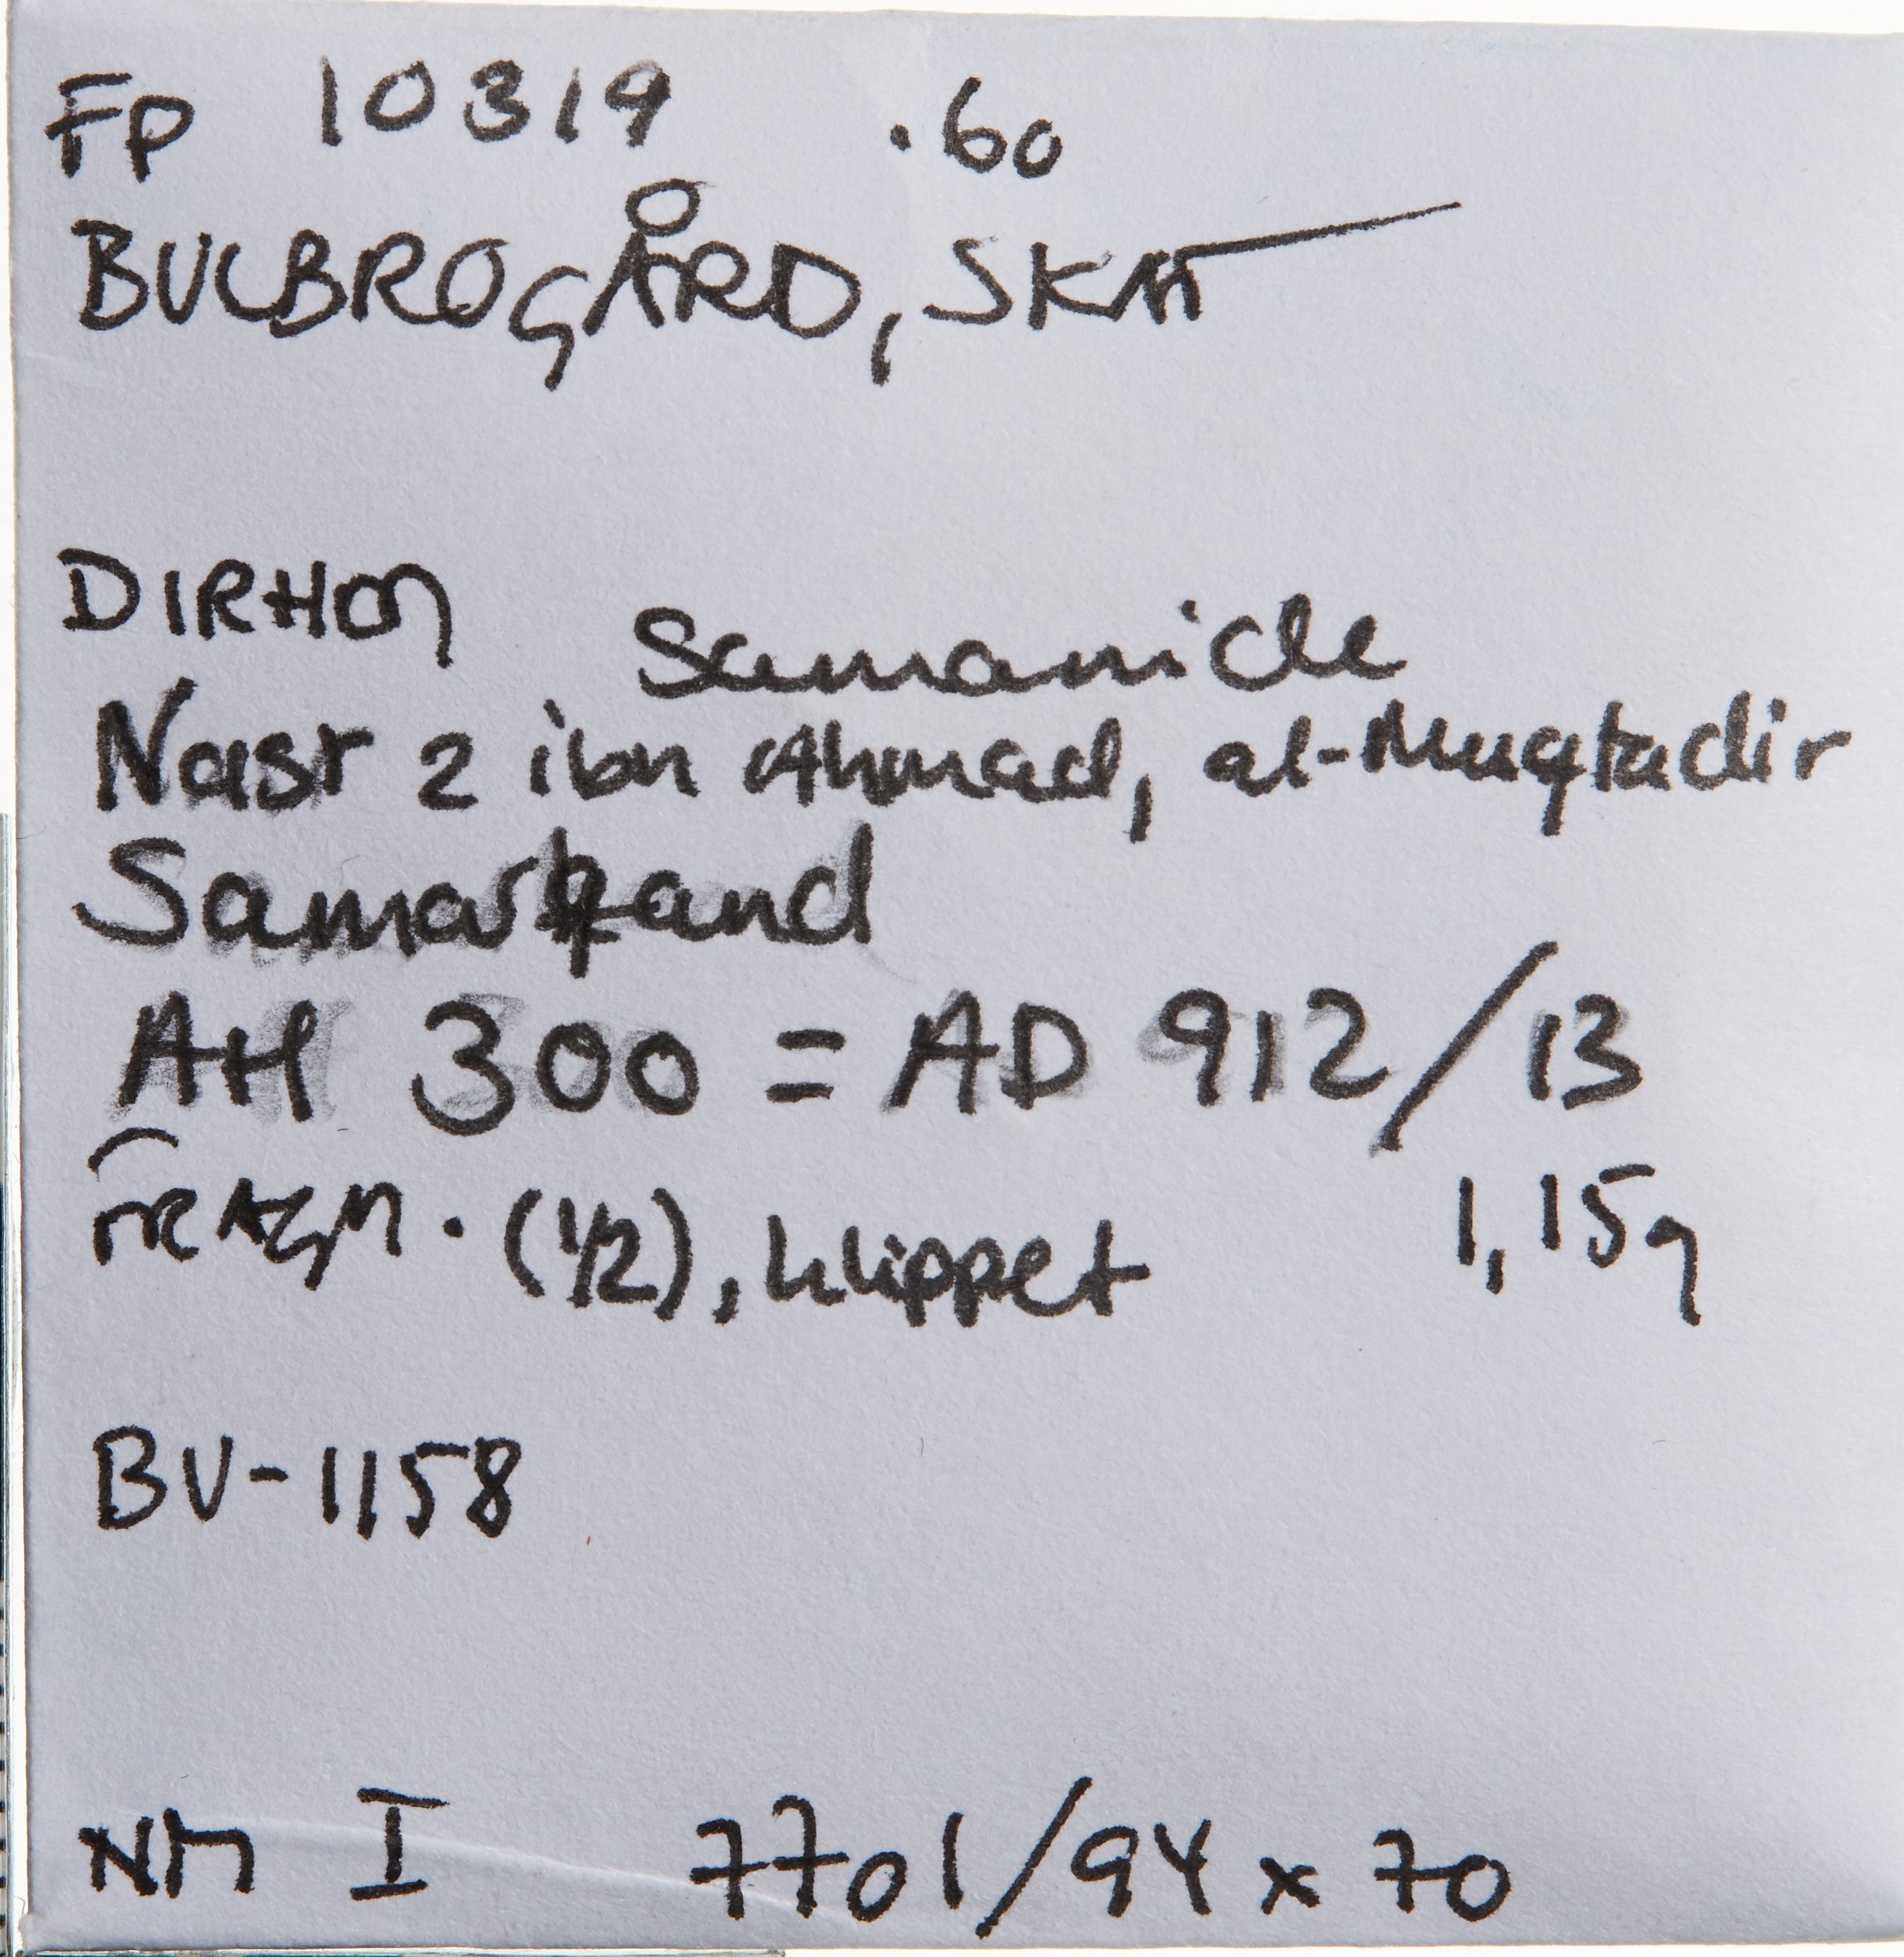 FP 10319 .60
BULBROGÅRD, SKAT
DIRHEM
Samanide
Nasr 2 ibn Ahmad, al-Muqtadir
Samarqand
AH 300 = AD 912/13
FRAGM. (1/2), klippet 1,15g
BU-1158
NM I 7701/94 x 70